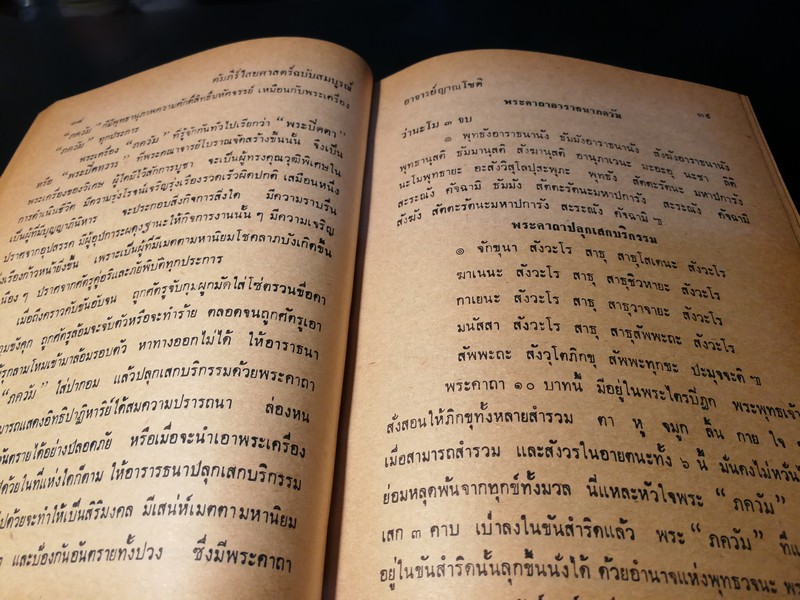 ๑๘
คัมภีร์ไสยศาสตร์ฉบับสมบูรณ์
"ภควัม" ก็มีพุทธานุภาพความศักดิ์สิทธิ์มหัศจรรย์ เหมือนกับพระเครื่อง
"ภควัม" ทุกประการ
พระเครื่อง "ภควัม" ที่รู้จักกันทั่วไปเรียกว่า "พระปิดตา"
หรือ "พระปิดทวาร" ที่พระคณาจารย์โบราณจัดสร้างขึ้นนั้น จึงเป็น
พระเครื่องของวิเศษ ผู้ใดมีไว้สักการบูชา จะเป็นผู้ทรงคุณวุฒิพิเศษใน
การดำเนินชีวิต มีความรุ่งโรจน์เจริญรุ่งเรืองรวดเร็วผิดปกติ เสมือนหนึ่ง
เป็นผู้ที่มีบุญญาภินิหาร จะประกอบสิ่งกิจการสิ่งใด มีความราบรื่น
ปราศจากอุปสรรค มีผู้อุปการะผดุงฐานะให้กิจการงานนั้น ๆ มีความเจริญ
เรืองก้าวหน้ายิ่งขึ้น เพราะเป็นผู้ที่มีเมตตามหานิยมโชคลาภบังเกิดขึ้น
เนือง ๆ ปราศจากศัตรูคู่อริและภัยพิบัติทุกประการ
เมื่อถึงคราวคับขันอับจน ถูกศัตรูจับกุมผูกมัดใส่โซ่ตรวนขื่อคา
ขังคุก ถูกศัตรูล้อมจะจับตัวหรือจะทำร้าย ตลอดจนถูกศัตรูเอา
รุกลามโหมเข้ามาล้อมรอบตัว หาทางออกไม่ได้ ให้อาราธนา
"ภควัม" ใส่ปากอม แล้วปลุกเสกบริกรรมด้วยพระคาถา
มารถแสดงอิทธิปาฏิหาริย์ได้สมความปรารถนา ล่องหน
อันตรายได้อย่างปลอดภัย หรือเมื่อจะนำเอาพระเครื่อง
ปด้วยในที่แห่งใดก็ตาม ให้อารารธนาปลุกเสกบริกรรม
ไปด้วยจะทำให้เป็นสิริมงคล มีเสน่ห์เมตตามหานิยม
และป้องกันอันตรายทั้งปวง ซึ่งมีพระคาถา
อาจารย์ญาณโชติ
๓๙
พระคาถาอาราธนาภควัม
ว่านะโม ๓ จบ
๑ พุทธังอาราธนานัง ธัมมังอาราธนานัง สังฆังอาราธนานัง
พุทธานุสติ ธัมมานุสติ สังฆานุสติ อานุภาเวนะ มะอะอุ นะชา ลีติ
นะโมพุทธายะ อะสังวิสุโลปุสะพุภะ พุทธัง สัตตะรัตนะ มหาปการัง
สะระณัง คัจฉามิ ธัมมัง สัตตะรัตนะมหาปการัง สะระณัง คัจฉามิ
สังฆัง สัตตะรัตนะมหาปการัง สะระณัง คัจฉามิ ๚
พระคาถาปลุกเสกบริกรรม
๑ จักขุนา สังวะโร สาธุ สาธุโสเตนะ สังวะโร
ฆาเนนะ สังวะโร สาธุ สาธุชิวหายะ สังวะโร
กาเยนะ สังวะโร สาธุ สาธุวาจายะ สังวะโร
มนัสสา สังวะโร สาธุ สาธุสัพพะถะ สังวะโร
สัพพะถะ สังวุโตภิกขุ สัพพะทุกขะ ปะมุจจะติ ๚
พระคาถา ๑๐ บาทนี้ มีอยู่ในพระไตรปิฎก พระพุทธเจ้า
สั่งสอนให้ภิกขุทั้งหลายสำรวม ตา หู จมูก ลิ้น กาย ใจ
เมื่อสามารถสำรวม และสังวรในอายตนะทั้ง ๖ นี้ มั่นคงไม่หวั่น
ย่อมหลุดพ้นจากทุกข์ทั้งมวล นี่แหละหัวใจพระ "ภควัม"
เสก ๓ คาบ เป่าลงในขันสำริดแล้ว พระ "ภควัม" ที่
อยู่ในขันสำริดนั้นลุกขึ้นนั่งได้ ด้วยอำนาจแห่งพุทธวจนะ